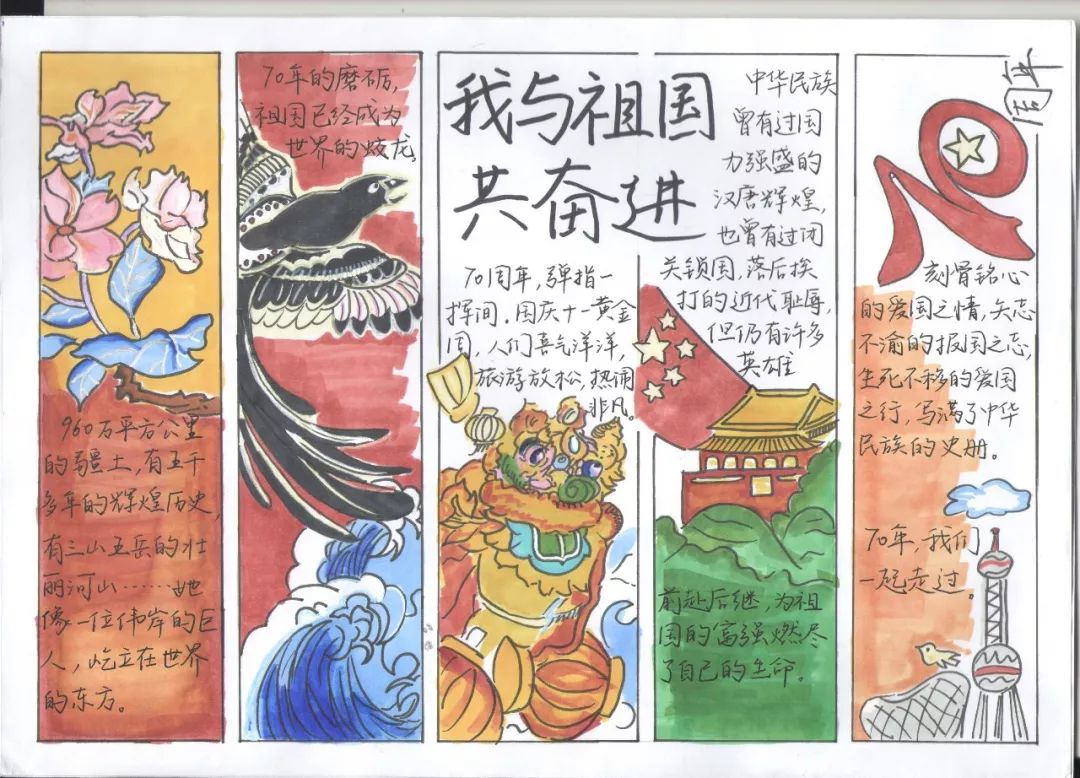 我与祖国
共奋进
960万平方公里
的疆土，有五千
多年的辉煌历史，
有三山五岳的壮
丽河山……她
像一位伟岸的巨
人，屹立在世界
的东方。
70年的磨砺，
祖国已经成为
世界的蛟龙。
70周年，弹指一
挥间。国庆十一黄金
周，人们喜气洋洋，
旅游放松，热闹
非凡。
中华民族
曾有过国
力强盛的
汉唐辉煌，
也曾有过闭
关锁国，落后挨
打的近代耻辱，
但仍有许多
英雄
前赴后继，为祖
国的富强燃尽
了自己的生命。
70
周年
刻骨铭心
的爱国之情，矢志
不渝的报国之志，
生死不移的爱国
之行，写满了中华
民族的史册。
70年，我们
一起走过。